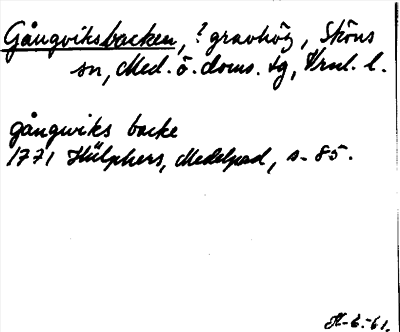 Gångviksbacken, ? gravhög, Sköns
sn, Med. ö. doms. tg, Vrnl. l.
gångwiks backe
1771 Hülphers, Medelpad, s. 85.
H-6.-61.